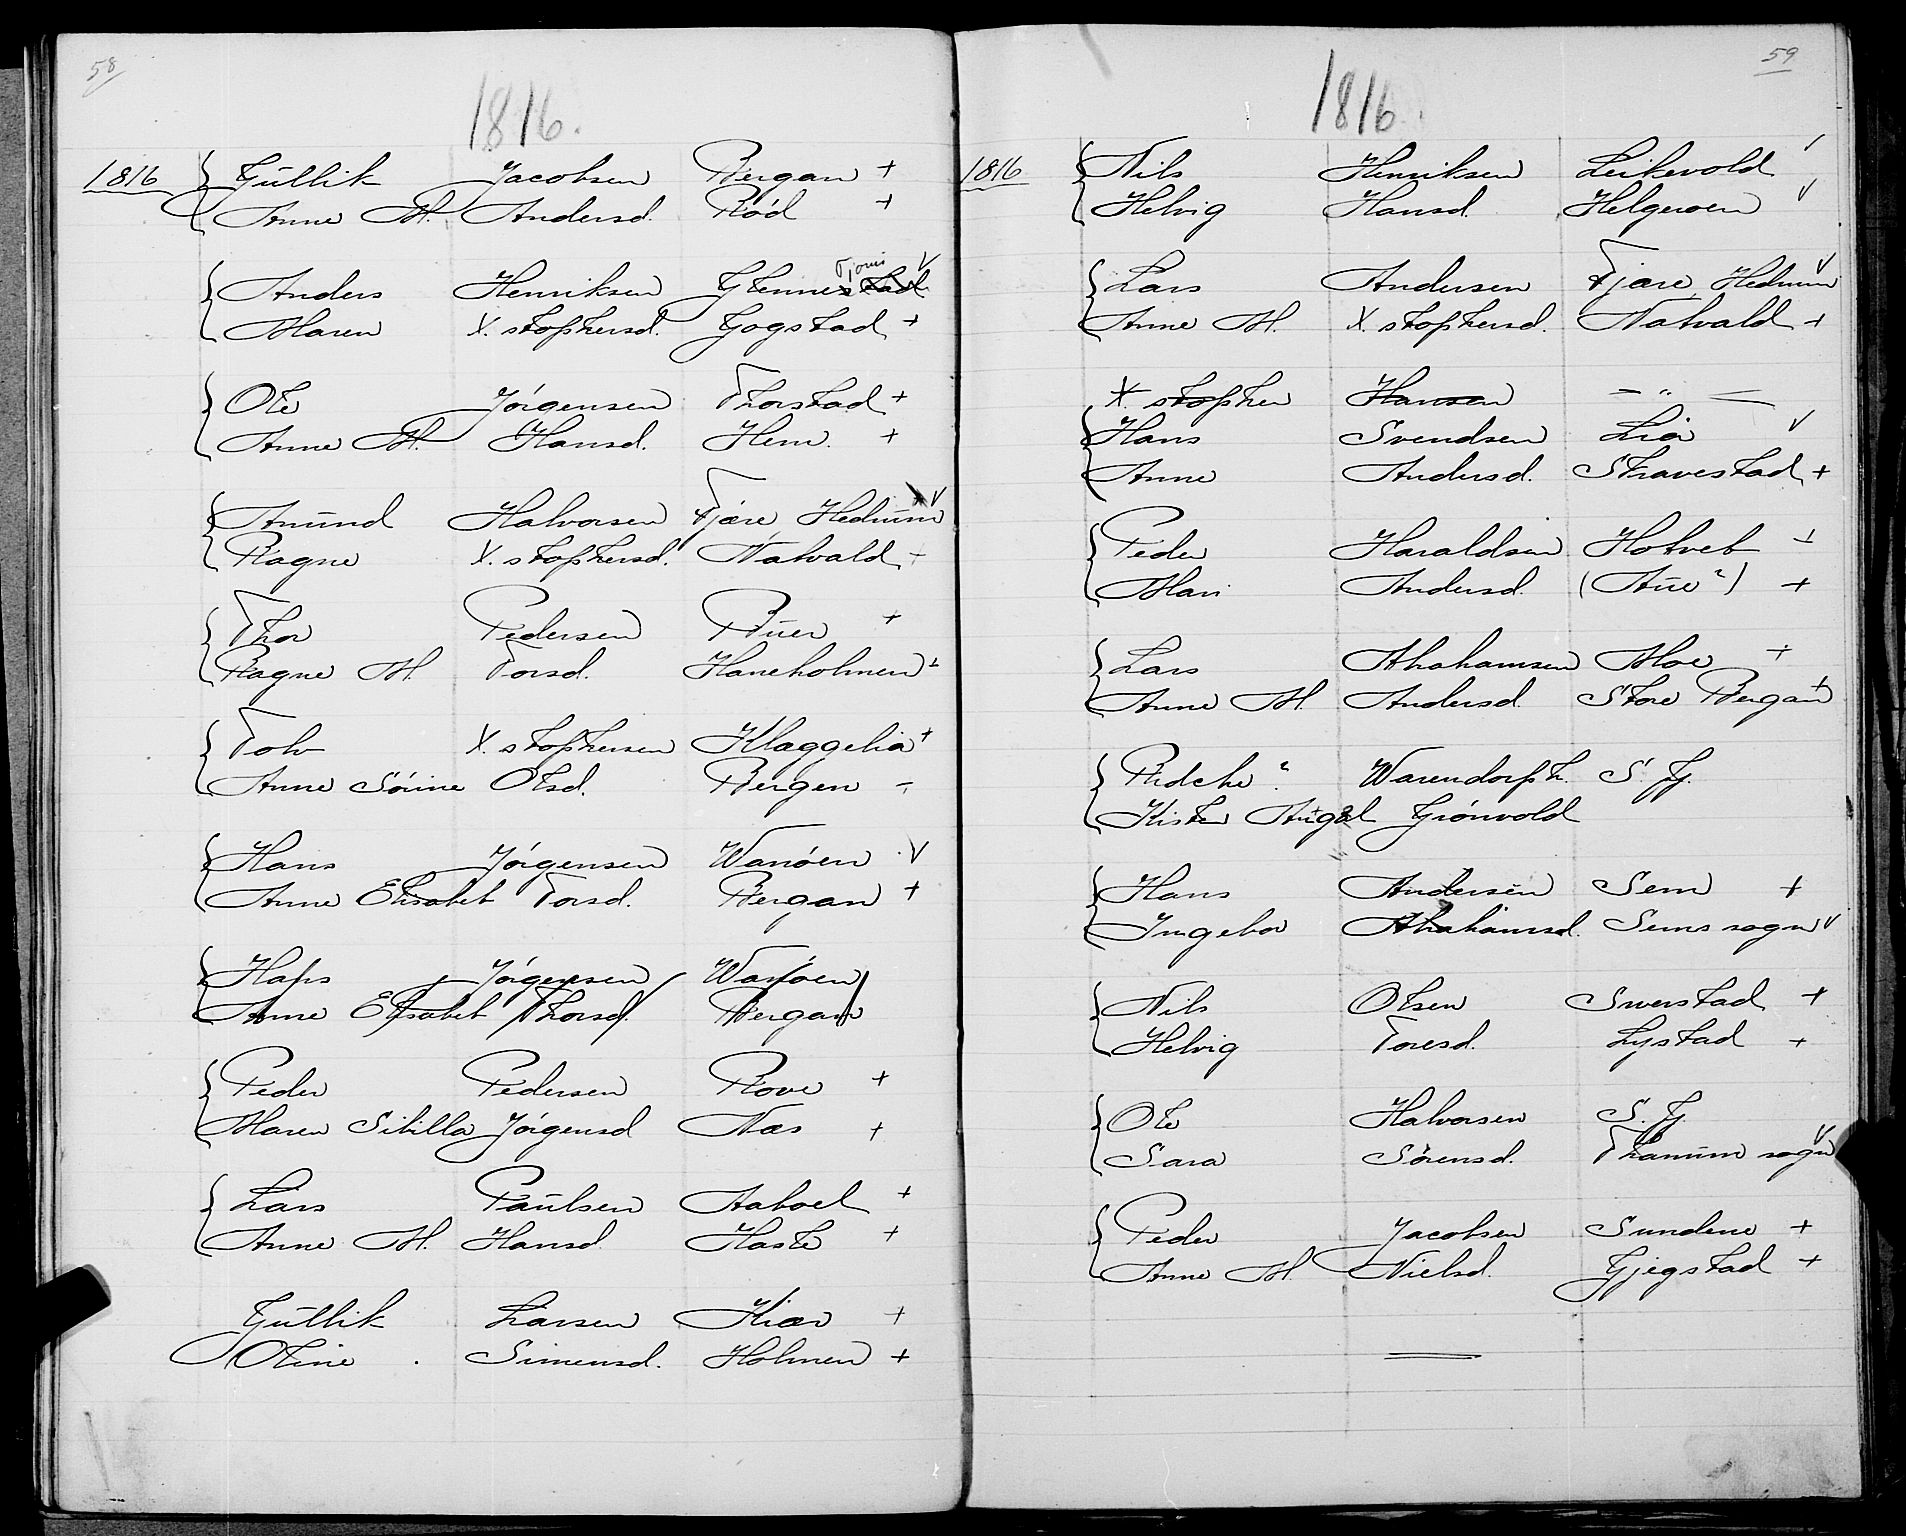 58
1816.
1816 Gullik Jacobsen Bergan +
Anne M. Andersd. Rød +
Tjøm
Anders Henriksen Glennes stad v
Maren X.stophersd. Gogstad +
Ole Jørgensen Thorstad +
Anne M. Hansd. Hem. +
Amund Halvorsen Fjære, Hedrum v
Ragne X.stophersd. Natvald +
Thor Pedersen Buer +
Ragne M. Torsd. Haneholmen +
Tolv X.stophersen Klaggelia +
Anne Sørine Olsd. Bergen +
Hans Jørgensen Warøen v
Anne Elisabet Torsd. Bergan +
Hans Jørgensen Warøen
Anne Elisabet Thorsd. Bergan
Peder Pedersen Rove +
Maren Sibilla Jørgensd Næs +
Lars Paulsen Aaboel +
Anne M. Hansd. Hasle +
Gullik Larsen Kiær +
Oline . Simensd. Holmen +
59
1816.
1816 Nils Henriksen Leikevold v
Helvig Hansd. Helgeroen v
Lars Andersen Fjære, Hedrum v
Anne M. X.stophersd. Natvald +
X.stopher Hansen – „ –
Hans Svendsen Lia v
Anne Andersd. Skravestad +
Peder Haraldsen Hotvet +
Mari Andersd. (Aue?) +
Lars Abrahamsen Moe +
Anne M. Andersd. Store Bergan +
? Warendorph. S. Fj.
Kisten Grønvold
Hans Andersen Sem +
Ingebor Abrahamsd. Sems sogn v
Nils Olsen Sverstad +
Helvig Toresd. Lystad +
Ole Halvorsen S. Fj.
Sara Sørensd. Thanum sogn v
Peder Jacobsen Sundene +
Anne M. Nielsd. Gjegstad +